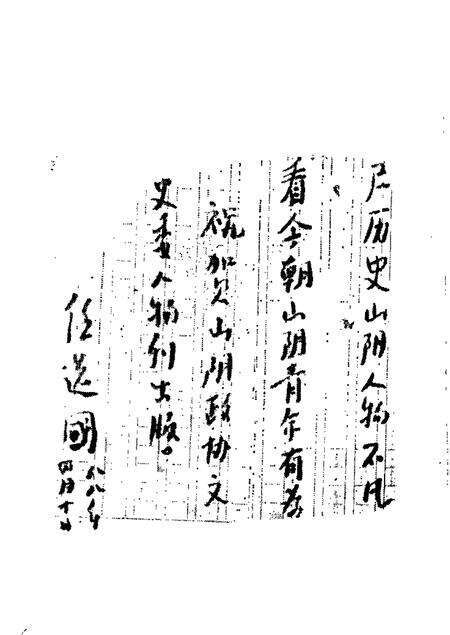 历史山阴人物不凡
看今朝山阴青年有为
祝贺山阴政协文
史委人物刊出版。
任选國
八八年
四月十日